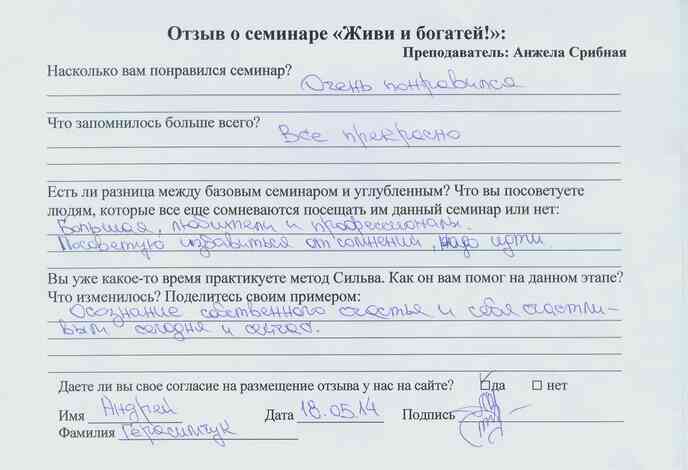 Отзыв о семинаре «Живи и богатей!»:
Преподаватель: Анжела Срибная
Насколько вам понравился семинар?
Очень понравился
Что запомнилось больше всего?
Все прекрасно
Есть ли разница между базовым семинаром и углубленным? Что вы посоветуете
людям, которые все еще сомневаются посещать им данный семинар или нет:
Большая, любители и профессионалы.
Посоветую избавиться от сомнений, надо идти.
Вы уже какое-то время практикуете метод Сильва. Как он вам помог на данном этапе?
Что изменилось? Поделитесь своим примером:
Осознание собственного счастья и себя счастли-
вым сегодня и сейчас.
Даете ли вы свое согласие на размещение отзыва у нас на сайте? да нет
Имя Андрей Дата 18.05.14 Подпись
Фамилия Герасимчук